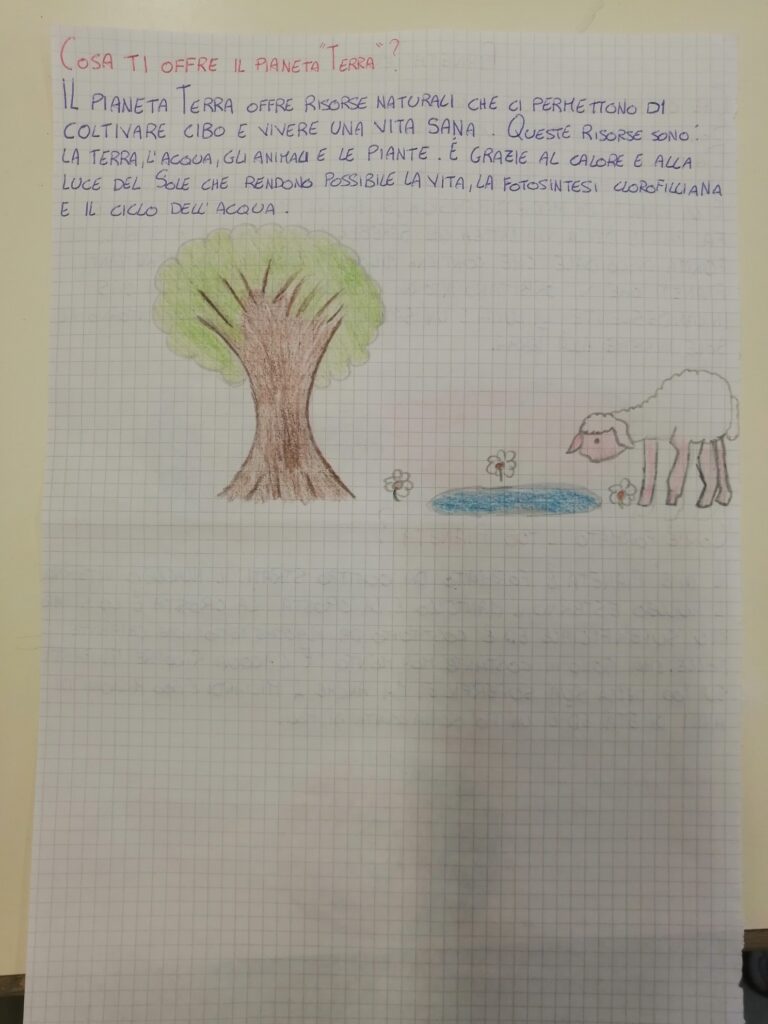 COSA TI OFFRE IL PIANETA "TERRA"?
IL PIANETA TERRA OFFRE RISORSE NATURALI CHE CI PERMETTONO DI
COLTIVARE CIBO E VIVERE UNA VITA SANA. QUESTE RISORSE SONO:
LA TERRA, L'ACQUA, GLI ANIMALI E LE PIANTE. É GRAZIE AL CALORE E ALLA
LUCE DEL SOLE CHE RENDONO POSSIBILE LA VITA, LA FOTOSINTESI CLOROFILLIANA
E IL CICLO DELL'ACQUA.